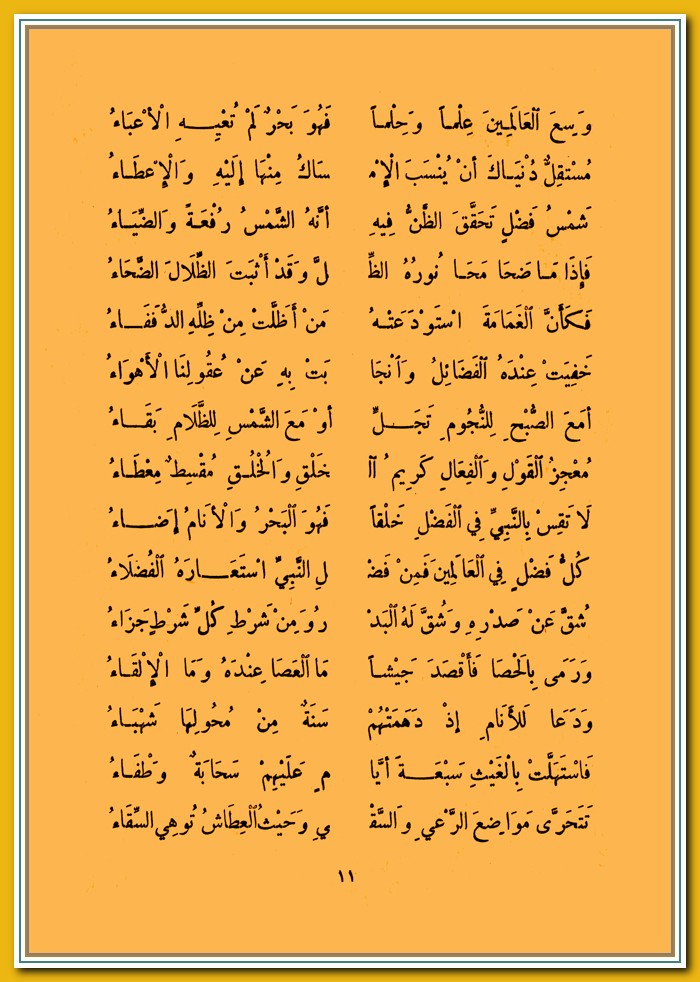 وَسِعَ ٱلْعَالَمِينَ عِلْماً وَحِلْمـاً فَهُوَ بَحْرٌ لَمْ تُعْيِـــهِ الْأَعْبَاءُ
مُسْتَقِلٌّ دُنْيَـاكَ أَنْ يُنْسَبَ الْإِمْـ ـسَاكُ مِنْهَا إِلَيْهِ وَالْإِعْطَـاءُ
شَمْسُ فَضْلٍ تَحَقَّقَ الظَّنُّ فِيهِ أَنَّهُ الشَّمْسُ رُفْعَـةً وَالضِّيَـاءُ
فَإِذَا مَـا ضَحَا مَحَـا نُورُهُ الظِّـ ـلَّ وَقَدْ أَثْبَتَ الظِّلَالَ الضَّحَاءُ
فَـكَأَنَّ ٱلْغَمَامَةَ اسْتَوْدَعَتْـهُ مَنْ أَظَلَّتْ مِنْ ظِلِّهِ الدُّفَفَـــاءُ
خَفِيَتْ عِنْدَهُ ٱلْفَضَائِلُ وَٱنْجَا بَتْ بِهِ عَنْ عُقُولِنَا الْأَهْوَاءُ
أَمَعَ الصُّبْحِ لِلنُّجُومِ تَجَـــلٍّ أَوْ مَعَ الشَّمْسِ لِلظَّلَامِ بَقَـــاءُ
مُعْجِزُ ٱلْقَوْلِ وَٱلْفِعَالِ كَرِيمُ ٱلْـ ـخَلْقِ وَالْخُلُـقِ مُقْسِطٌ مِعْطَـاءُ
لَا تَقِسْ بِالنَّبِيِّ فِي ٱلْفَضْلِ خَلْقاً فَهُوَ ٱلْبَحْرُ وَالْأَنَامُ إِضَـــاءُ
كُلُّ فَضْلٍ فِي ٱلْعَالَمِينَ فَمِنْ فَضْـ ـلِ النَّبِيِّ اسْتَعَـــارَهُ ٱلْفُضَلَاءُ
شُقَّ عَنْ صَدْرِهِ وَشُقَّ لَهُ ٱلْبَدْ رُ وَمِنْ شَرْطِ كُلِّ شَرْطٍ جَزَاءُ
وَرَمَى بِالْحَصَا فَأَقْصَدَ جَيْشـاً مَا ٱلْعَصَا عِنْدَهُ وَمَا الْإِلْقَـاءُ
وَدَعَا لِلْأَنَامِ إِذْ دَهَمَتْهُمْ سَنَةٌ مِنْ مُحُولِهَا شَهْبَـاءُ
فَاسْتَهَلَّتْ بِالْغَيْثِ سَبْعَـــةَ أَيَّا مٍ عَلَيْهِمْ سَحَابَةٌ وَطْفَـاءُ
تَتَحَرَّى مَوَاضِعَ الرَّعْيِ وَالسَّقْـ ـيِ وَحَيْثُ ٱلْعِطَاشُ تُوهِي السِّقَاءُ
١١